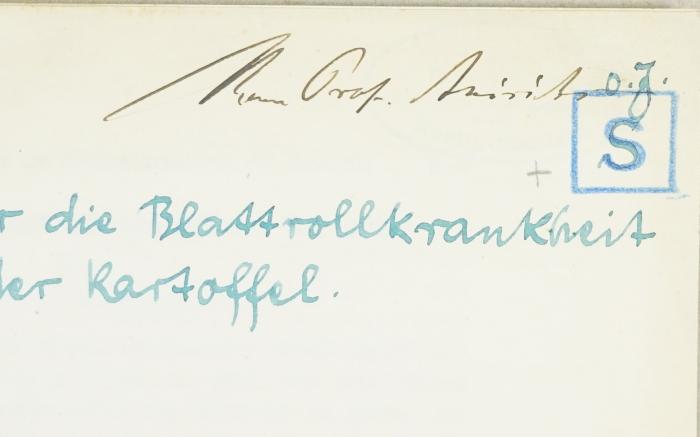 Herrn Prof. o.J.
S
+
r die Blattrollkrankheit
der Kartoffel.